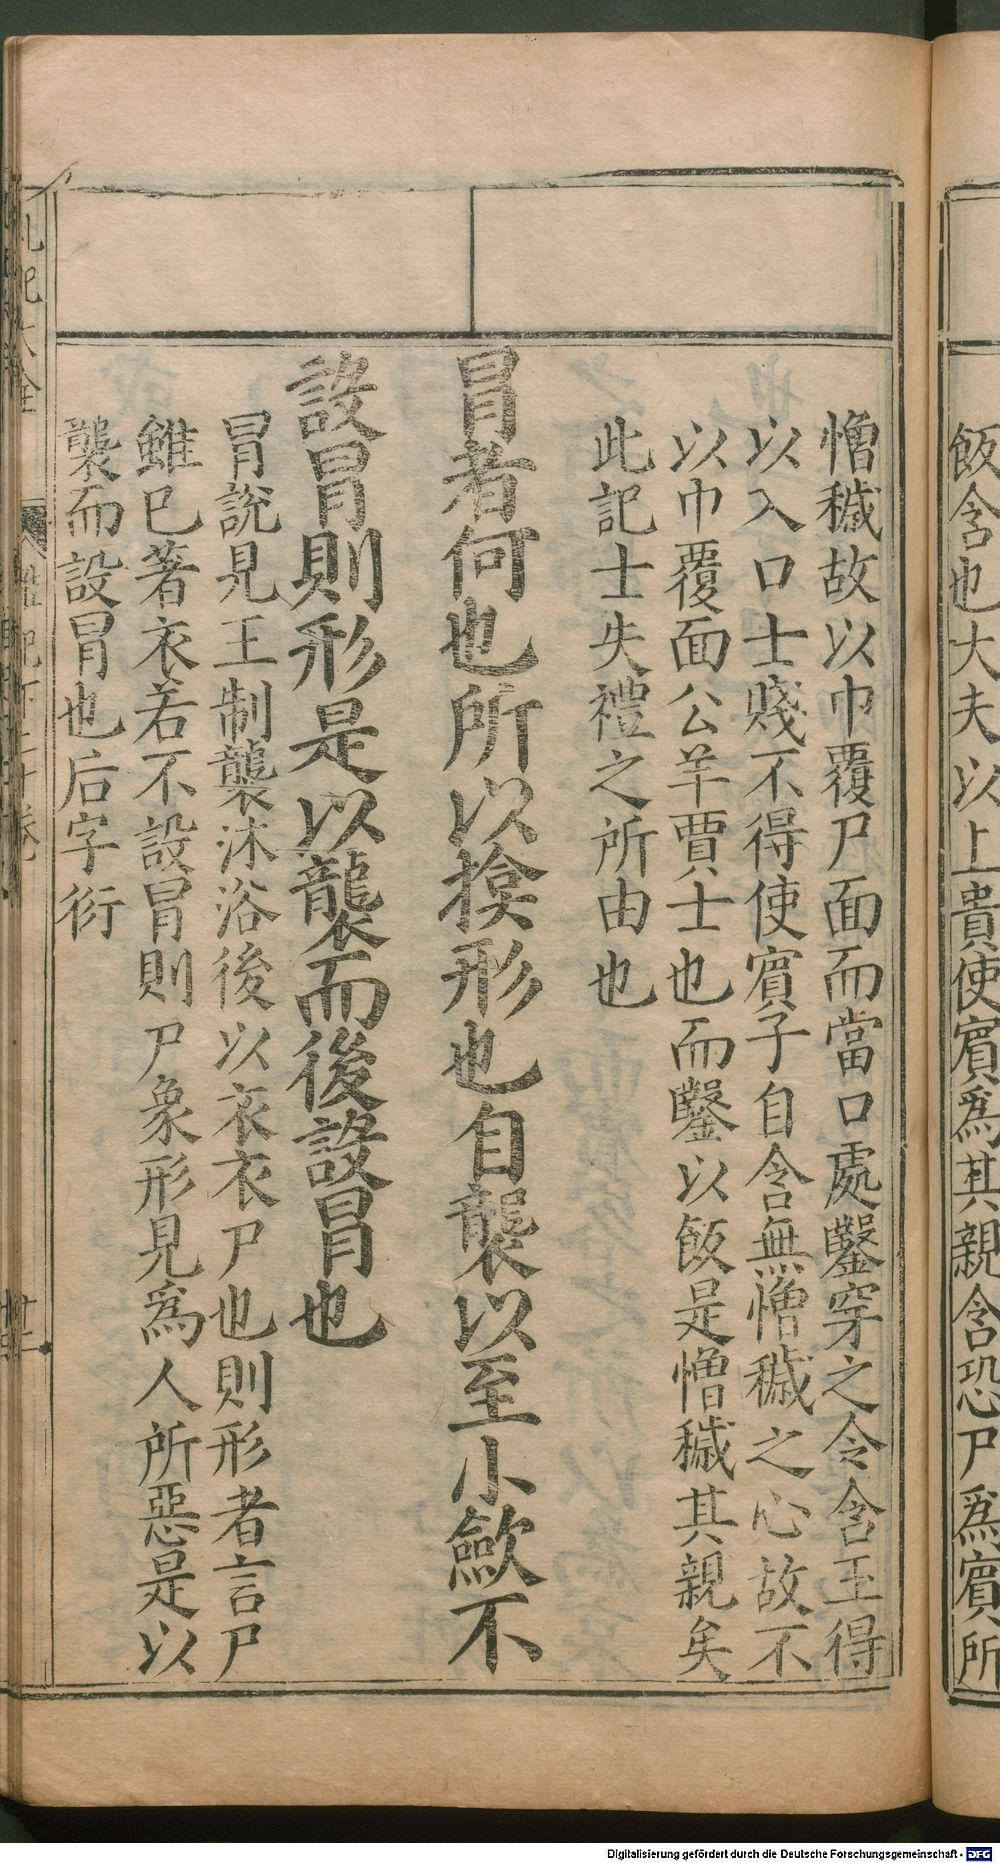 飯含也大夫以上貴使賔爲其親含恐尸爲賔所
憎穢故以巾覆尸面而當口處鑿穿之令含玉得
以入口士賤不得使賔子自含無憎穢之心故不
以巾覆面公羊賈士也而鑿以飯是憎穢其親矣
此記士失禮之所由也
冒者何也所以揜形也自襲以至小歛不
設冒則形是以襲而後設冒也
冐說見王制襲沐浴後以衣衣尸也則形者言尸
雖巳著衣若不設冐則尸象形見爲人所惡是以
襲而設冐也后字衍
礼記大全
Digitalisierung gefördert durch die Deutsche Forschungsgemeinschaft - DFG